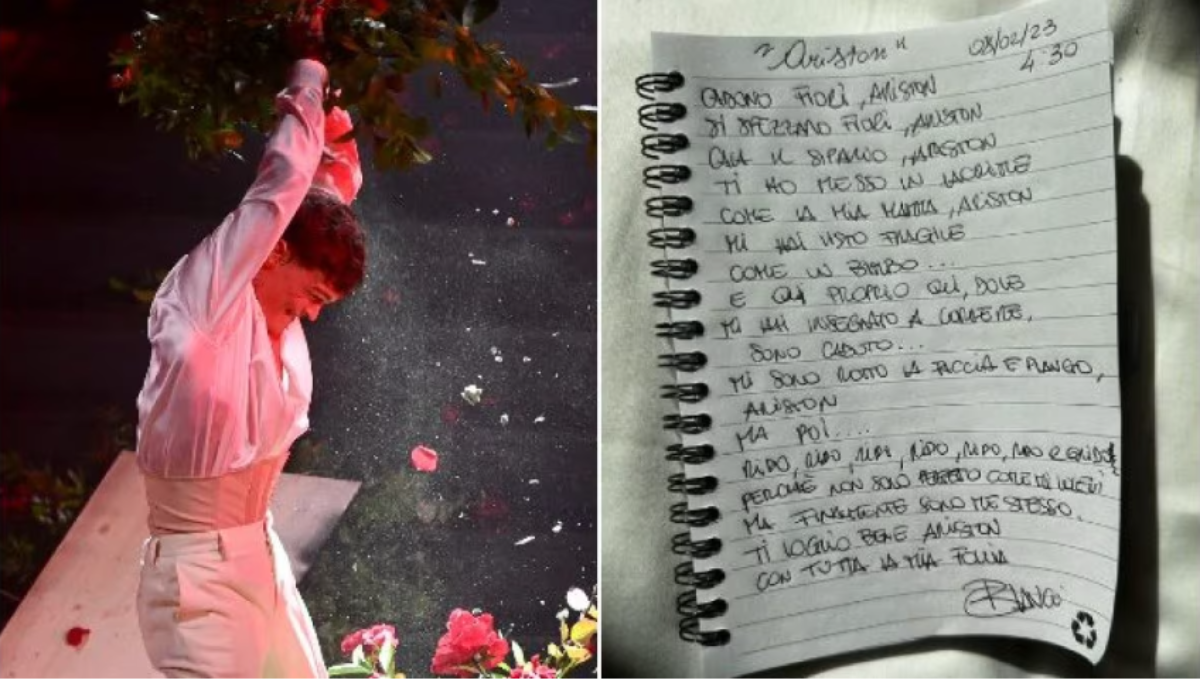 "Ariston"
08/02/23
4:30
CADONO FIORI, ARISTON
SI SPEZZANO FIORI, ARISTON
CALA IL SIPARIO, ARISTON
TI HO MESSO IN LACRIME
COME LA MIA MAMMA, ARISTON
MI HAI VISTO FRAGILE
COME UN BIMBO...
E QUI PROPRIO QUI, DOVE
MI HAI INSEGNATO A CORRERE,
SONO CADUTO...
MI SONO ROTTO LA FACCIA E PIANGO,
ARISTON
MA POI....
RIDO, RIDO, RIDO, RIDO, RIDO, RIDO E GRIDO
PERCHÈ NON SONO COME MI VUOI
MA FINALMENTE SONO ME STESSO.
TI VOGLIO BENE ARISTON
CON TUTTA LA MIA FOLLIA
BLANCO